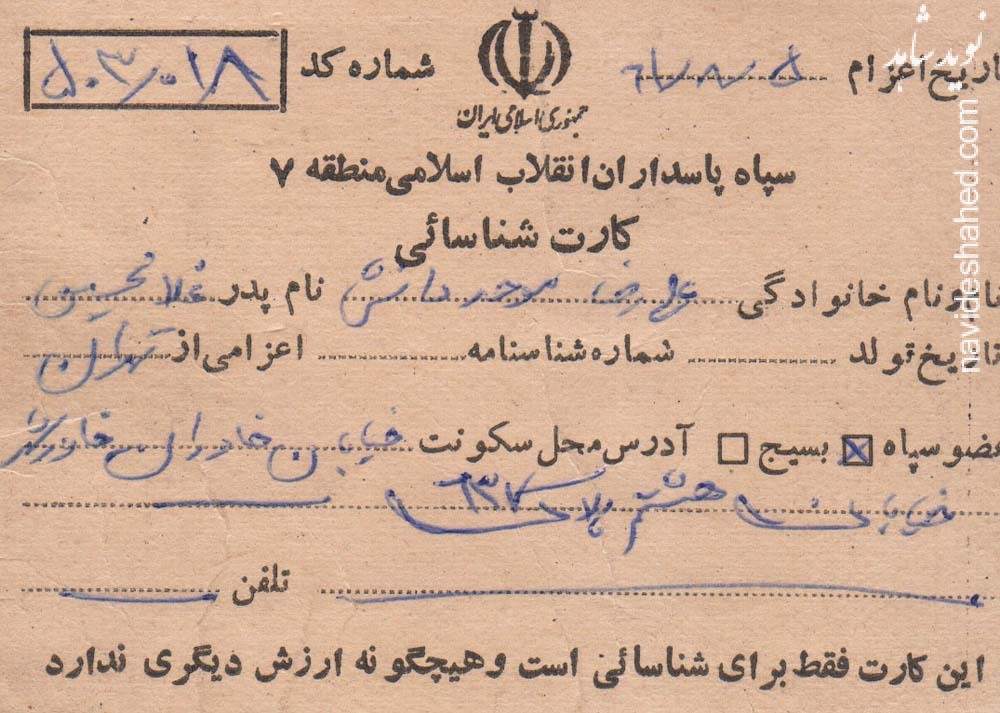 نوید شاهد
navideshahed.com
تاریخ اعزام ۶۱/۸/۵ شماره کد ۵۰۳۰۱۸
جمهوری اسلامی ایران
سپاه پاسداران انقلاب اسلامی منطقه ۷
کارت شناسائی
نام و نام خانوادگی علیرضا موحد دانش نام پدر غلامحسین
تاریخ تولد شماره شناسنامه اعزامی از تهران
عضو سپاه بسیج آدرس محل سکونت خیابان خاوران خاور
خیابان هشتم پلاک ۶۳۷
تلفن
این کارت فقط برای شناسائی است و هیچگونه ارزش دیگری ندارد